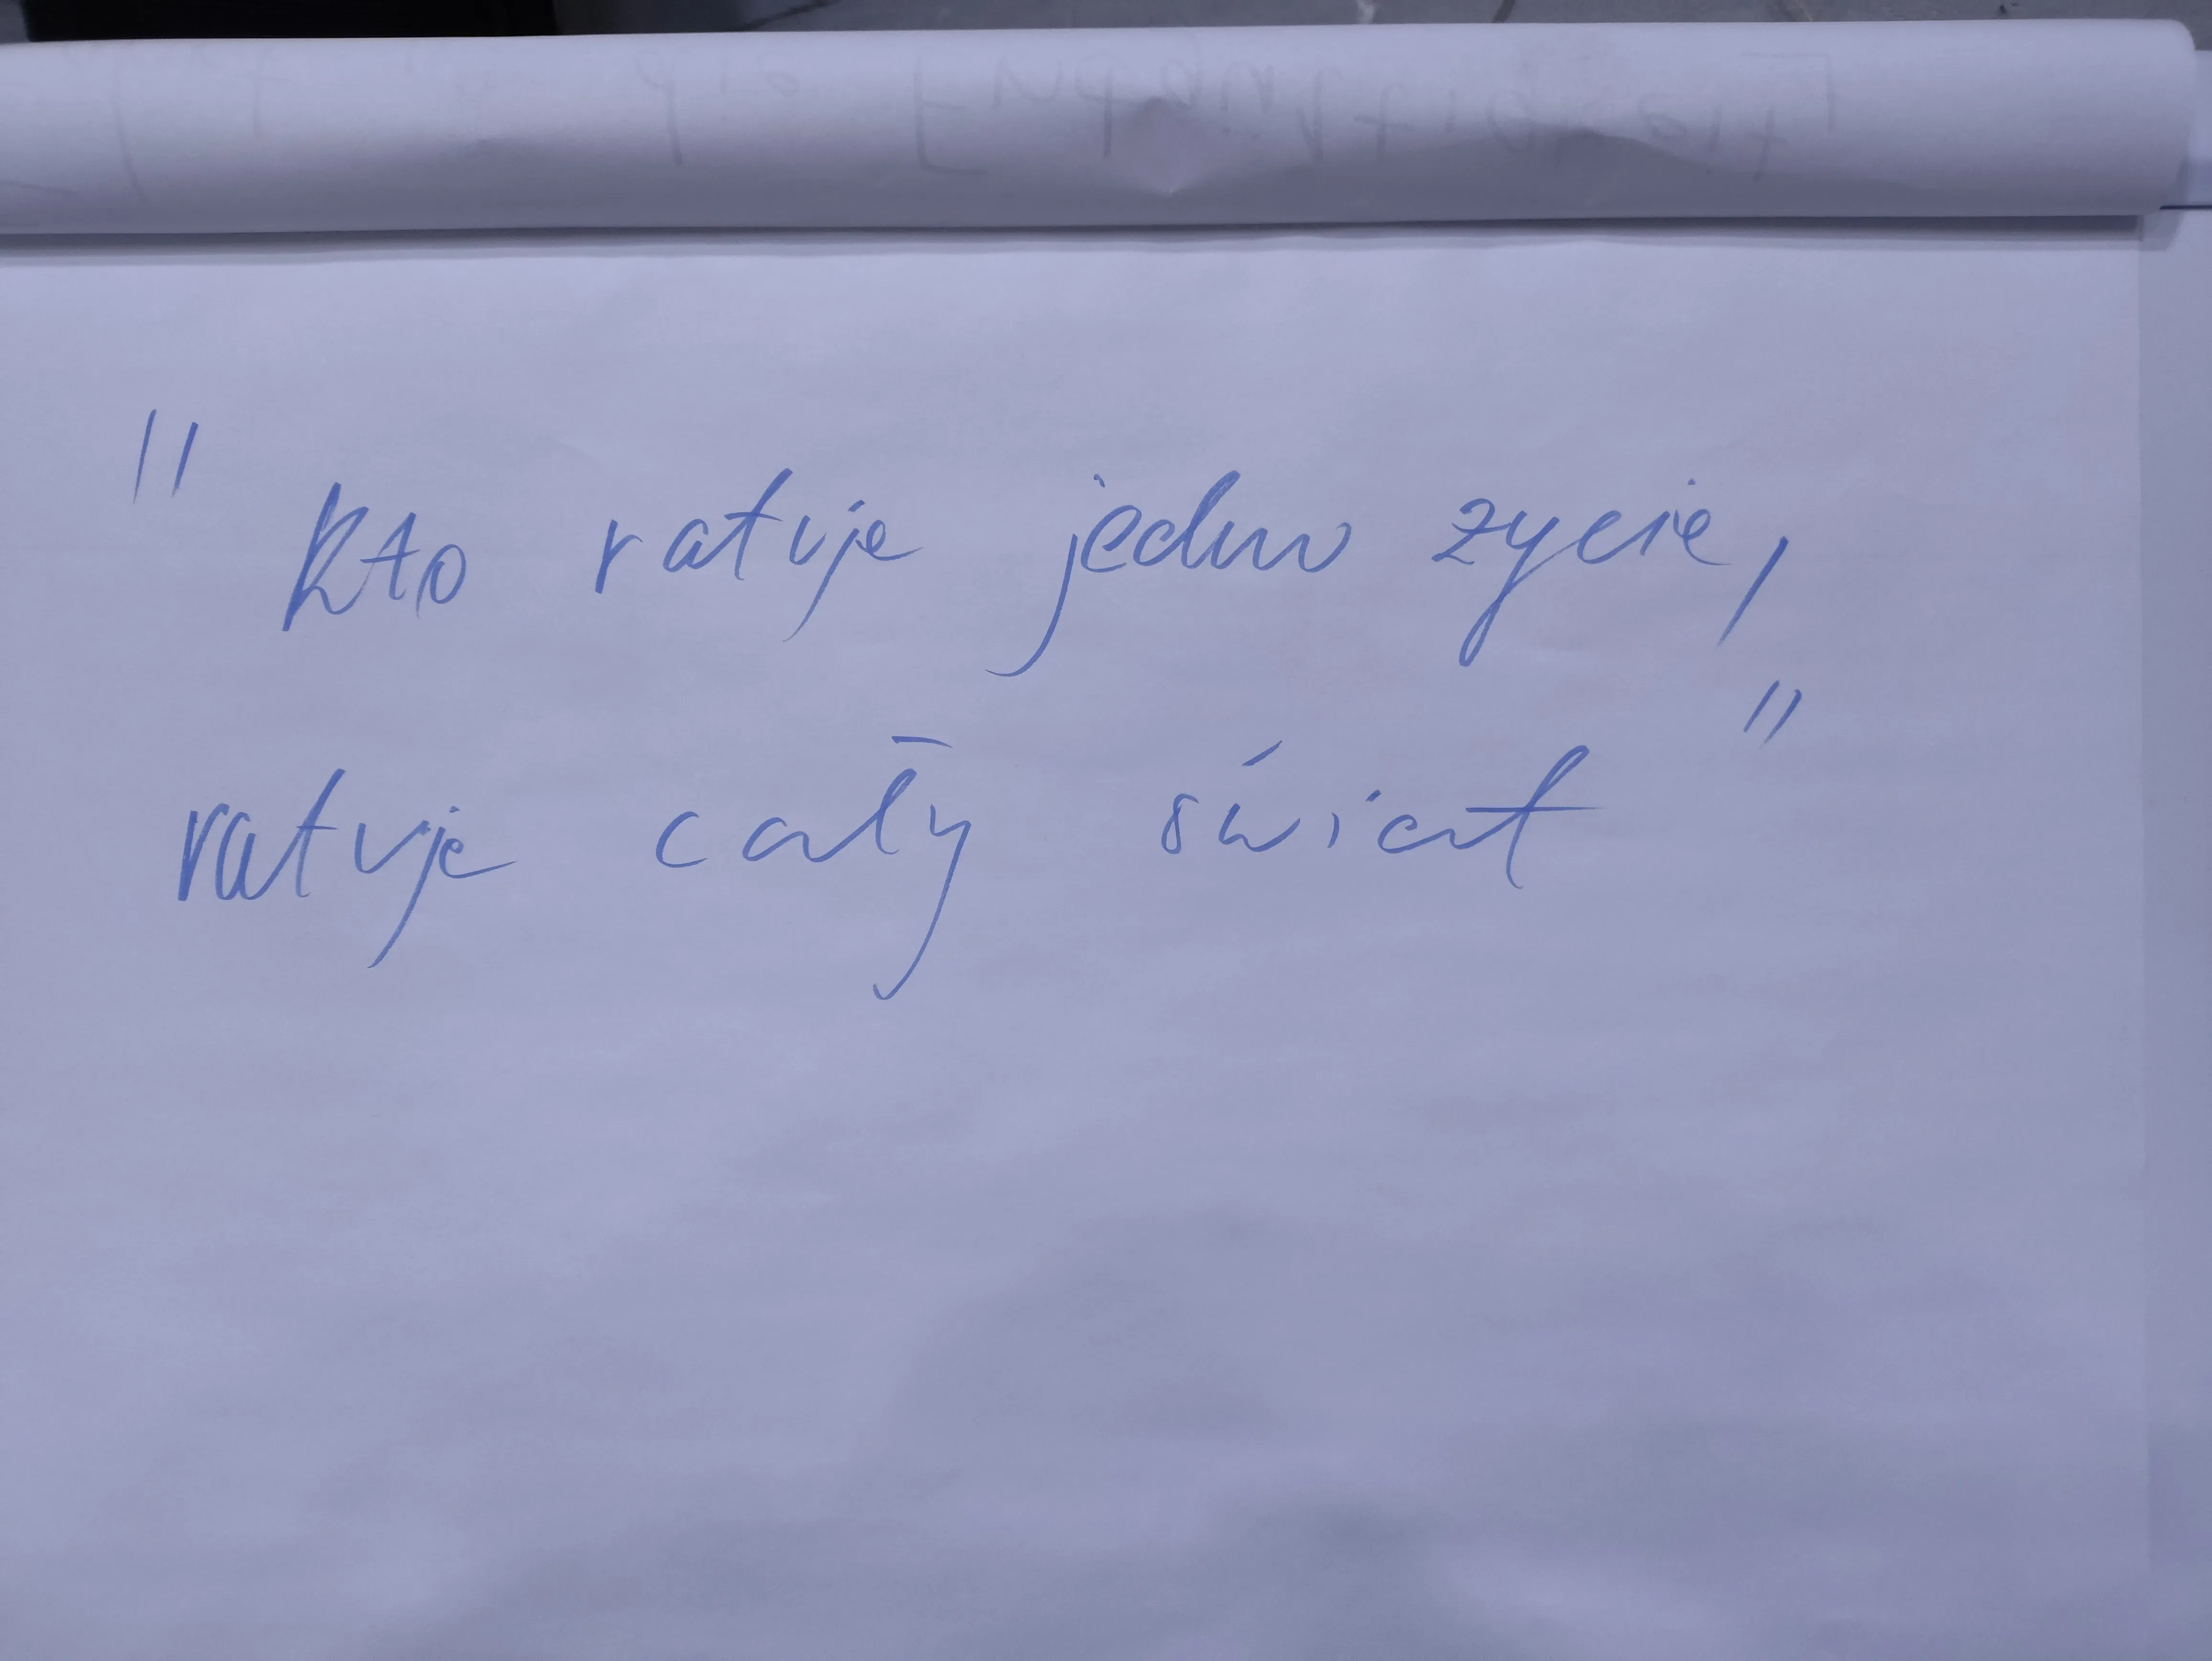 "Kto ratuje jedno zycie,
ratuje cały świat"